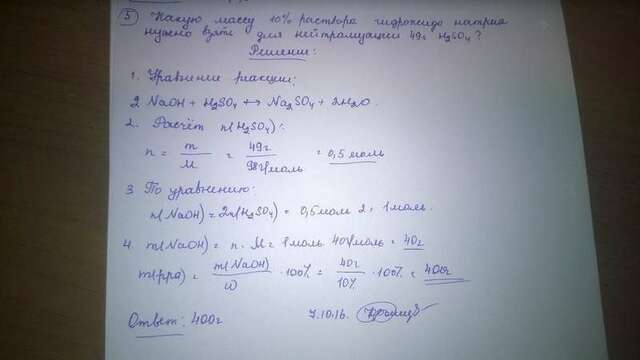 5 Какую массу 10% раствора гидроксида натрия
нужно взять для нейтрализации 49г H₂SO₄?
Решение:
1. Уравнение реакции:
2 NaOH + H₂SO₄ ↔ Na₂SO₄ + 2H₂O.
2. Расчёт n(H₂SO₄):
n = m/M = 49г/98г/моль = 0,5 моль
3 По уравнению:
n(NaOH) = 2n(H₂SO₄) = 0,5моль 2 = 1моль.
4. m(NaOH) = n · M = 1моль · 40г/моль = 40г
m(р-ра) = m(NaOH)/ω · 100% = 40г/10% · 100% = 400г
Ответ: 400г 7.10.16.